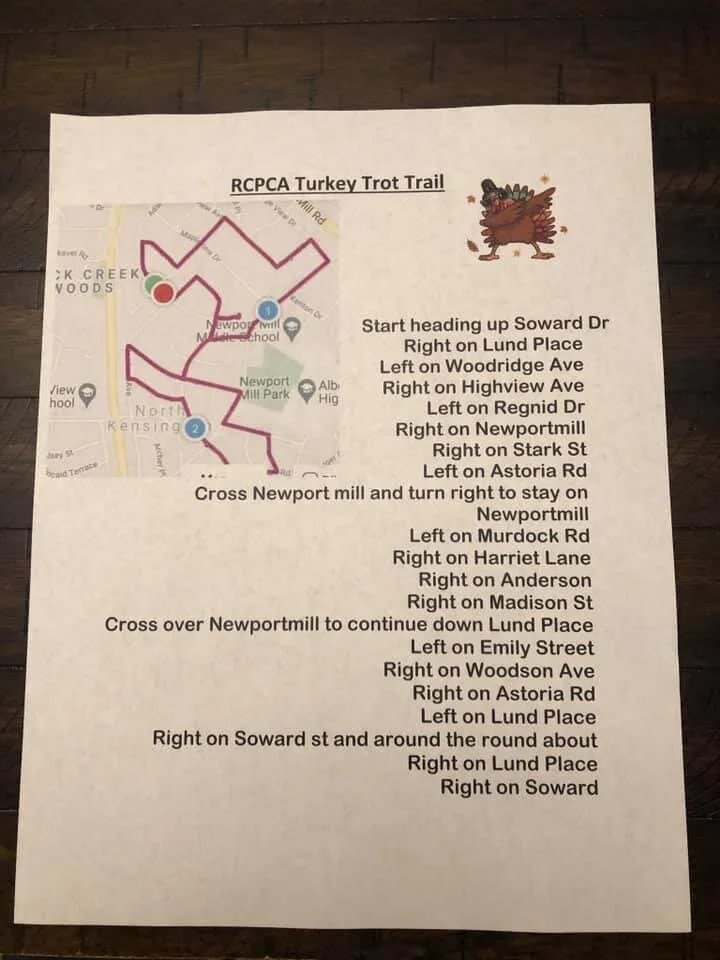 RCPCA Turkey Trot Trail
Mill Rd
View Dr
CK CREEK
WOODS
Kenton Dr
1
Newport Mill
Middle School
View
hool
Newport
Mill Park
Alb
Hig
Ave
North
Kensing
2
Rd
Start heading up Soward Dr
Right on Lund Place
Left on Woodridge Ave
Right on Highview Ave
Left on Regnid Dr
Right on Newportmill
Right on Stark St
Left on Astoria Rd
Cross Newport mill and turn right to stay on
Newportmill
Left on Murdock Rd
Right on Harriet Lane
Right on Anderson
Right on Madison St
Cross over Newportmill to continue down Lund Place
Left on Emily Street
Right on Woodson Ave
Right on Astoria Rd
Left on Lund Place
Right on Soward st and around the round about
Right on Lund Place
Right on Soward